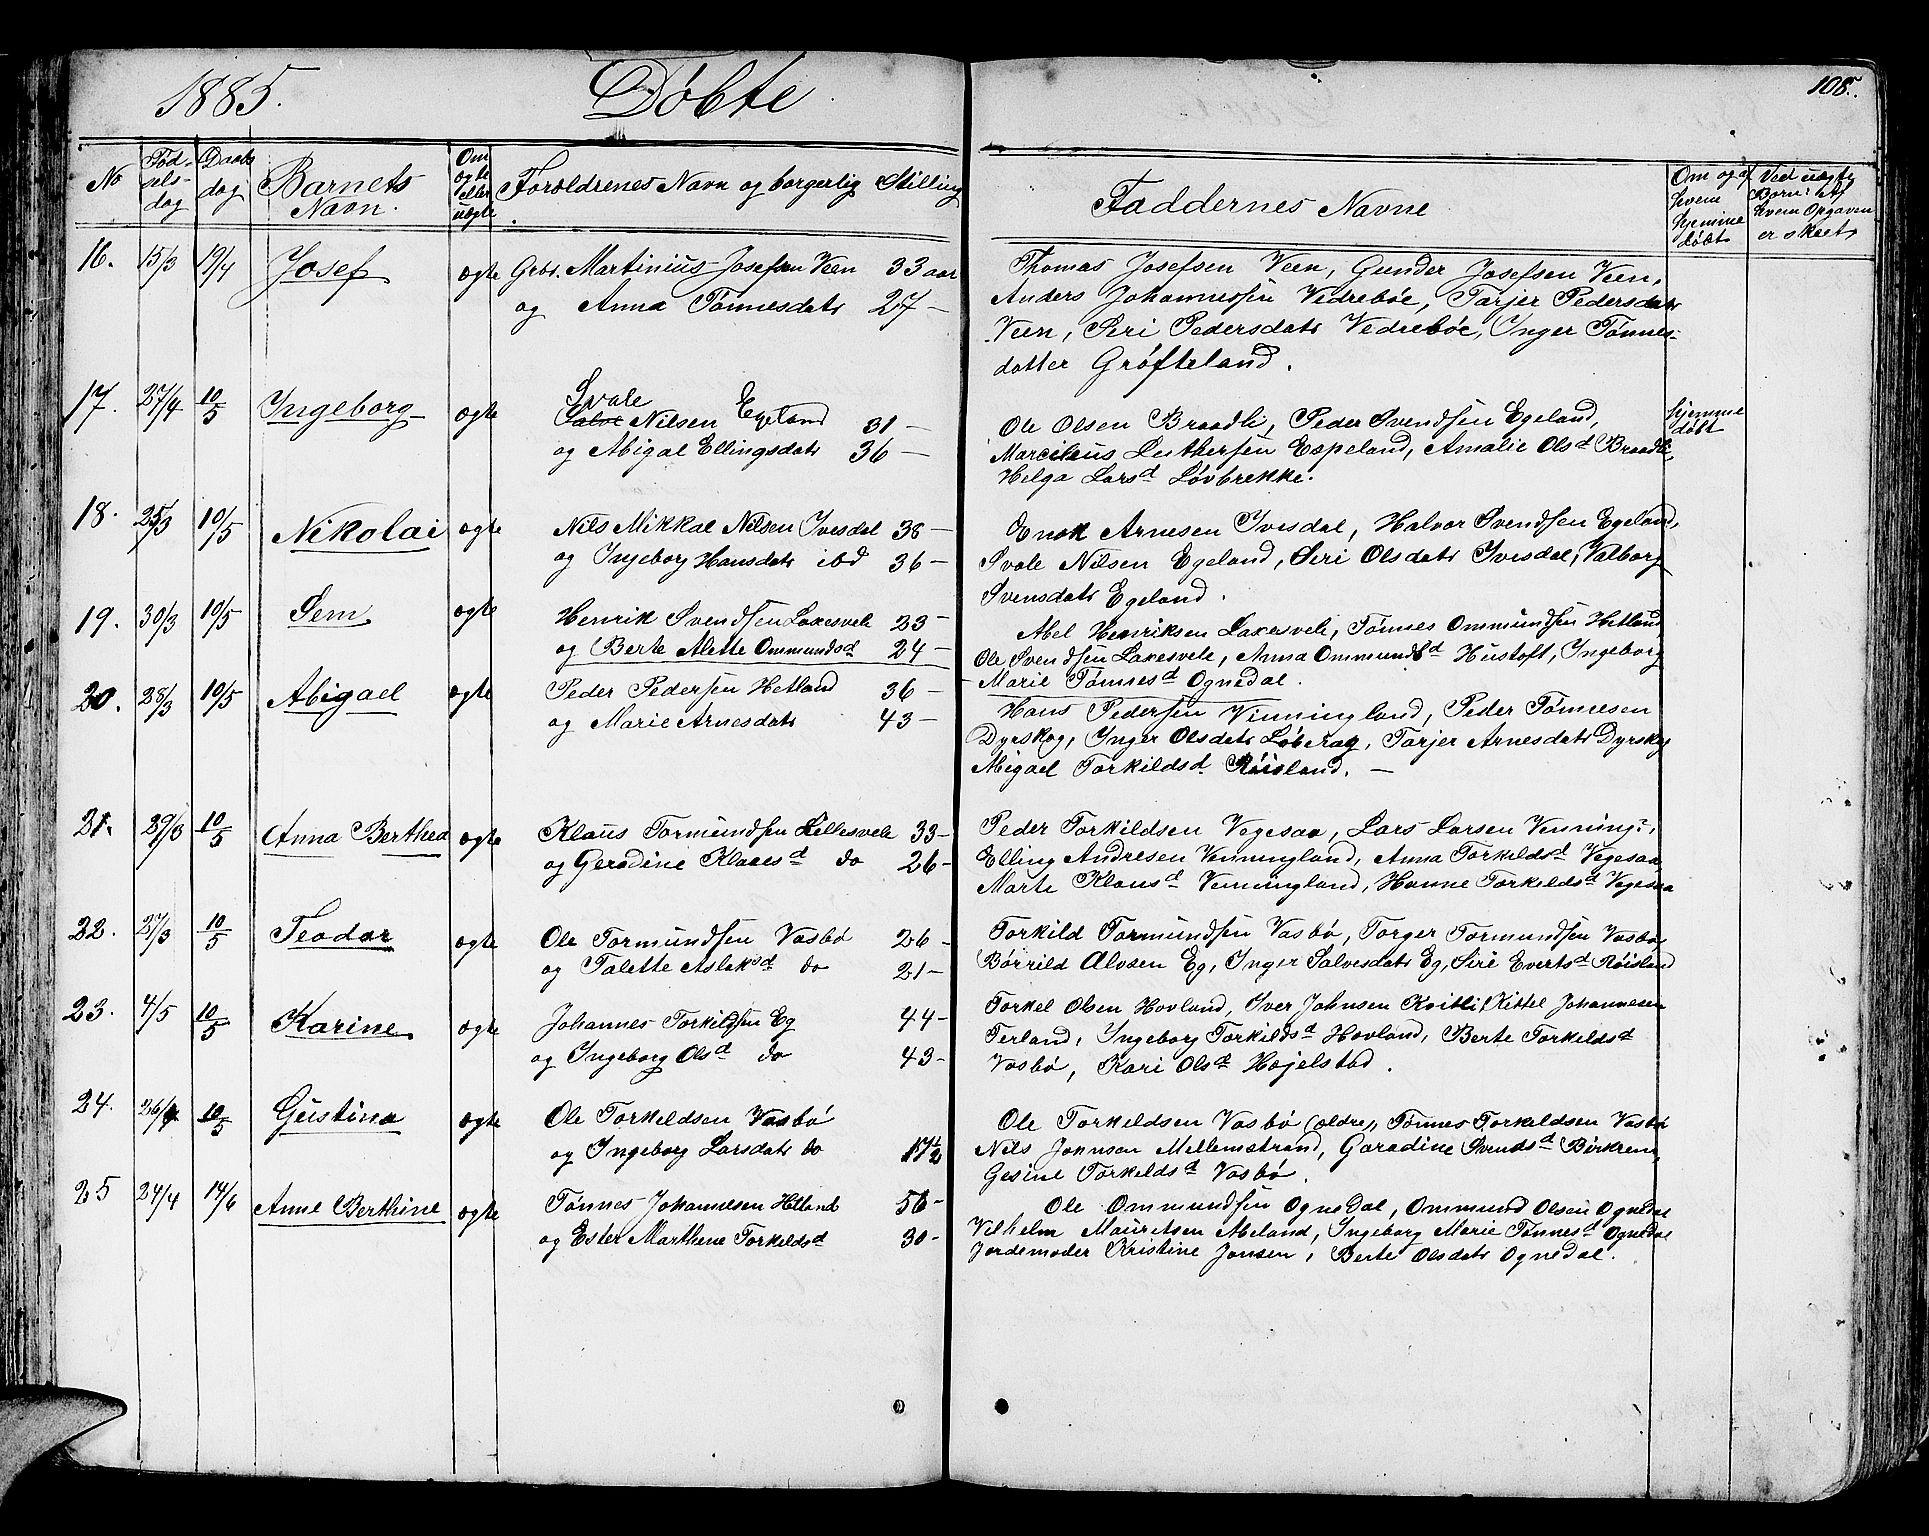 1885. Döbte
108.
No Föd-sels-dag Daabs dag Barnets Navn. Om ægte eller uægte Forældrenes Navn og borgerlig Stilling. Faddernes Navne Om og af hvem hjemme döbt Ved uægte Börn: af hvem Opgaven er skeet
16. 15/3 19/4 Josef ægte Grbr. Martinius Josefsen Veen 33 aar
og Anna Tönnesdatr 27 —
Thomas Josefsen Veen, Gunder Josefsen Veen,
Anders Johannessen Vedreböe, Tarjer Pedersdatr
Veen, Seri Pedersdatr Vedreböe, Inger Tönnes-
datter Gröfteland.
17. 27/4 10/5 Ingeborg ægte Svale
Salve Nilsen Egeland 31 —
og Abigal Ellingsdatr 36 —
Ole Olsen Braadli, Peder Svendsen Egeland, hjemme döbt
Marcilius Luthersen Espeland, Amalie Olsd Braadli,
Helga Larsd Lövbrekke.
18. 25/3 10/5 Nikolai ægte Nils Mikkal Nilsen Ivesdal 38 —
og Ingeborg Hansdatr ibd 36 —
Enok Arnesen Ivesdal, Halvor Svendsen Egeland,
Svale Nilsen Egeland, Seri Olsdatr Ivesdal, Valborg
Svensdatr Egeland.
19. 30/3 10/5 Sem ægte Henrik Svendsen Laksvele 23 —
og Berte Alette Ommundsd 24 —
Abel Henriksen Laksvele, Tönnes Ommundsen Hetland
Ole Svendsen Laksvele, Anna Ommundsd Hustoft, Ingeborg
Marie Tönnesd Ognedal.
20. 28/3 10/5 Abigael ægte Peder Pedersen Hetland 36 —
og Marie Arnesdatr 43 —
Hans Pedersen Vinningland, Peder Tönnesen
Dyrskog, Inger Olsdatr Löberag, Tarjer Arnesdatr Dyrskog
Abigael Torkildsd Röisland. —
21. 29/3 10/5 Anna Berthea ægte Klaus Tormundsen Lillesvele 33 —
og Geradine Klausd do 26 —
Peder Torkildsen Vegesaa, Lars Larsen Venning:,
Elling Andresen Venningland, Anna Torkildsd Vegesaa
Marte Klausd Venningland, Hanne Torkildsd Vegesaa
22. 27/3 10/5 Teodor ægte Ole Tormundsen Vasbö 26 —
og Talette Aslaksd do 21 —
Torkild Tormundsen Vasbö, Torger Tormundsen Vasbö,
Börrild Alvsen Eg, Inger Salvesdatr Eg, Siri Evertsd Röisland
23. 4/5 10/5 Karine ægte Johannes Torkildsen Eg 44 —
og Ingeborg Olsd do 43 —
Torkel Olsen Hovland, Iver Johnsen Kvitli, Kittel Johannesen
Terland, Ingeborg Torkildsd Hovland, Berte Torkildsd
Vasbö, Kari Olsd Hæjelstad.
24. 26/4 10/5 Gustina ægte Ole Torkeldsen Vasbö
og Ingeborg Larsdatr do 17½
Ole Torkeldsen Vasbö (ældre), Tönnes Torkeldsen Vasbö
Nils Johnsen Mellemstrand, Garadine Svendsd Birkrem,
Gesine Torkeldsd Vasbö.
25 24/4 14/6 Anne Berthine ægte Tönnes Johannesen Hetland 56 —
og Ester Marthene Torkildsd 30 —
Ole Ommundsen Ognedal, Ommund Olsen Ognedal
Vilhelm Mauritsen Meland, Ingeborg Marie Tönnesd Ognedal
Jordemoder Kristine Jonsen, Berte Olsdatr Ognedal.